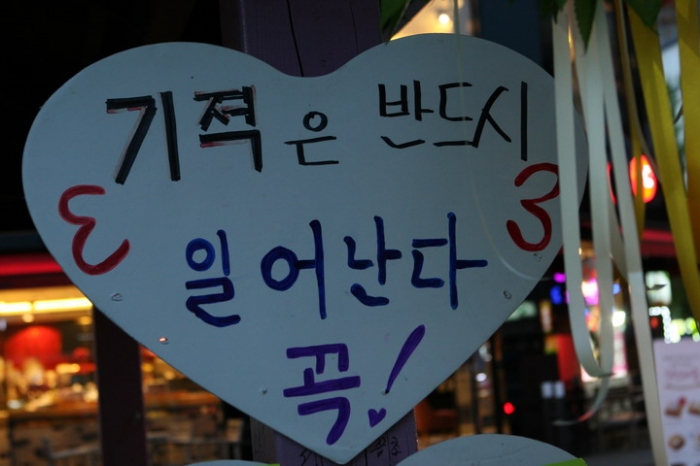 기적은 반드시
일어난다
꼭!